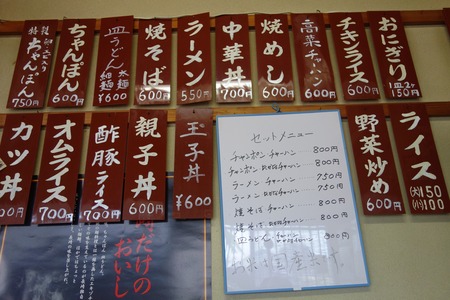 おにぎり
1皿2ヶ
150円
チキンライス
600円
高菜チャハン
600円
焼めし
600円
中華丼
700円
ラーメン
550円
焼そば
600円
皿うどん 太麺 細麺
¥600
ちゃんぽん
600円
特 ちゃんぽん
750円
ライス
(大)150
(小)100
野菜炒め
600円
玉子丼
¥600
親子丼
600円
酢豚ライス
700円
オムライス
700円
カツ丼
セットメニュー
チャンポン チャーハン 800円
チャンポン 800円
ラーメン チャーハン 750円
ラーメン 750円
焼そば チャーハン 800円
焼そば 800円
皿うどん チャーハン 800円
だけの
おいし